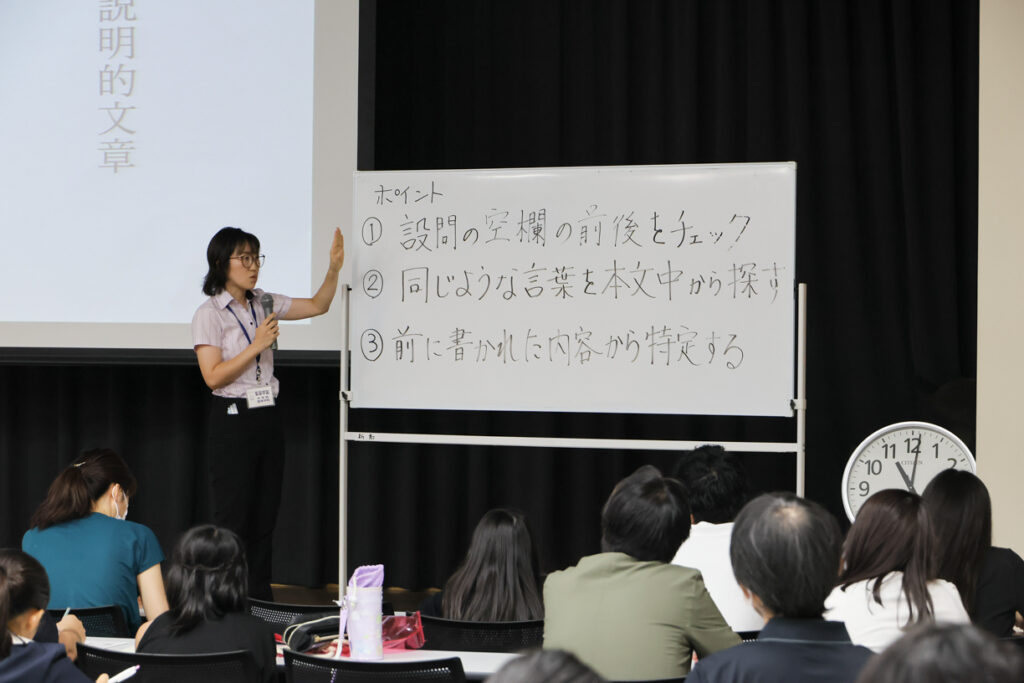 説明的文章
ポイント
① 設問の空欄の前後をチェック
② 同じような言葉を本文中から探す
③ 前に書かれた内容から特定する
CITIZEN
11 12 1
10
9